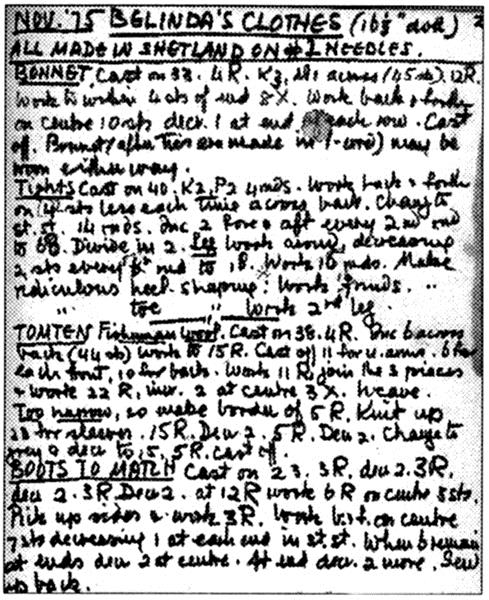 NOV. '75 BELINDA'S CLOTHES (16½" doll)
ALL MADE IN SHETLAND ON #1 NEEDLES.
BONNET. Cast on 38. 4R. K3, across (45 sts). 12R.
Work to within 4 sts of end 8X. Work back & forth
on centre 10 sts decr. 1 at end each row. Cast
off. Bonnet (after ties are made in I-cord) may be
worn either way.
Tights Cast on 40. K2, P2 4 rnds. Work back & forth
on sts less each time across back. Change to
st. st. 14 rnds. Inc 2 fore & aft every 2nd rnd
to 68. Divide in 2. Leg Work around, decreasing
2 sts every rnd to 18. Work 16 rnds. Make
ridiculous heel shaping. Work rnds. "
" toe " Work 2nd leg.
TOMTEN Fisherman Wool. Cast on 38. 4R. Inc 6 across
back (44 sts) Work to 15R. Cast off 11 for u.arms. 6 for
each front, 10 for back. Work 11 R, join the 3 pieces
& work 22 R, incr. 2 at centre 3X. Weave.
Too narrow, so make border of 5 R. Knit up
for sleeves. 15R. Dec 2. 5R. Dec 2. Change to
grey & decr to 15. 5R. cast off.
BOOTS TO MATCH Cast on 23. 3R, dec 2. 3R,
dec 2. 3R. Dec 2. at 12R work 6R on centre 5 sts.
Pick up sides & work 3R. Work b.+f. on centre
7 sts decreasing 1 at each end in st. st. When 6 remain
at ends dec 2 at centre. At end decr. 2 more. Sew
up back.